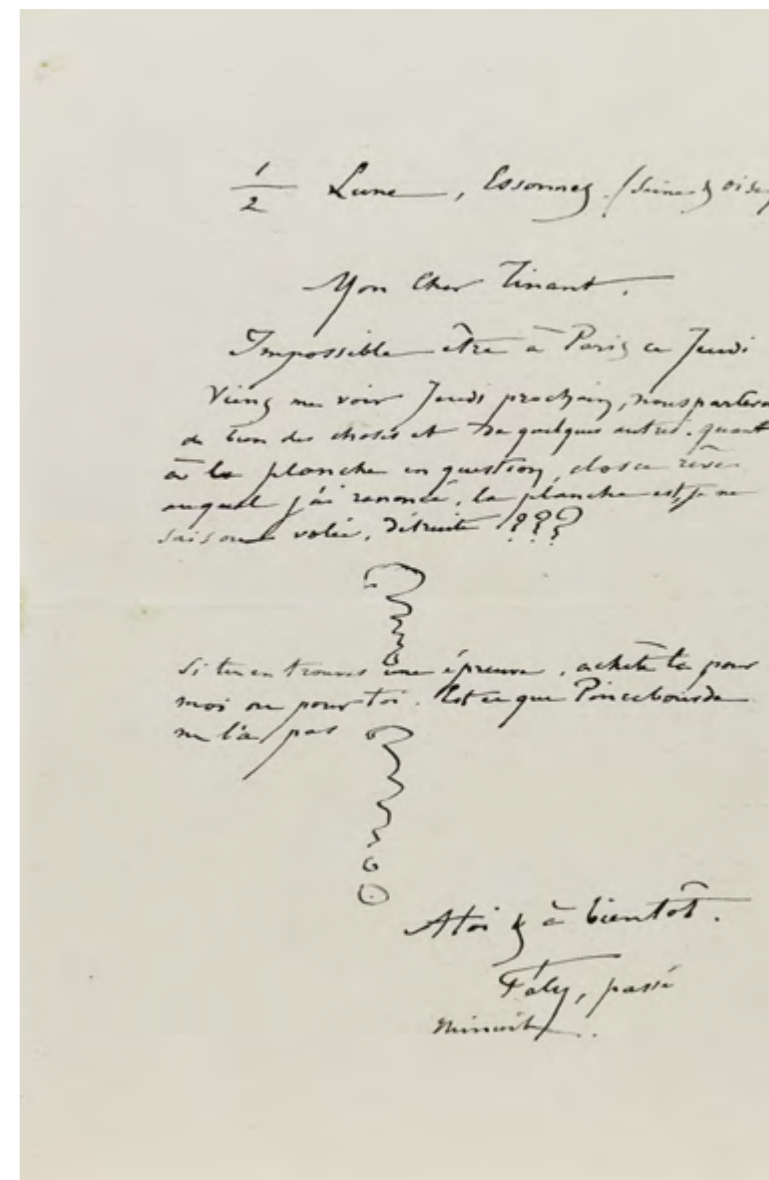 1/2 Lune, Essonnes. (Seine & Oise)
Mon Cher Tinant.
Impossible être à Paris ce Jeudi
Viens me voir Jeudi prochain, nous parlero
de bien des choses et de quelques autres. quant
à la planche en question,
auquel j'ai renoncé, la planche est, je ne
sais où volée, détruite ???
Si tu en trouves une épreuve, achète la pour
moi ou pour toi. Est ce que Pincebourde
ne l'a pas
A toi & à bientôt.
Fély, passé
minuit.